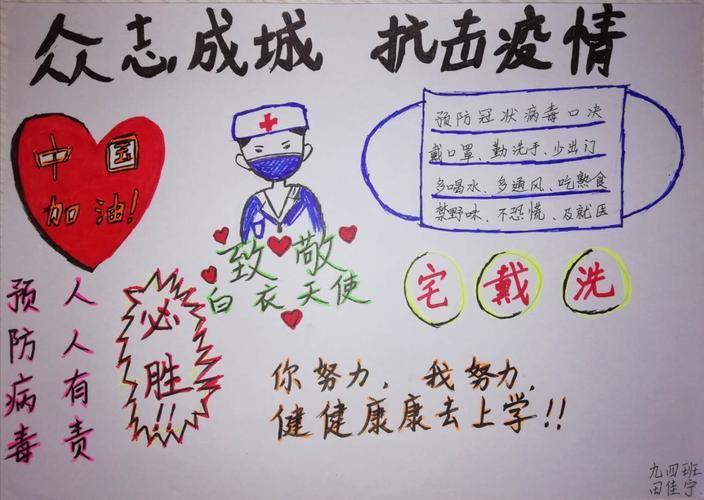 众志成城 抗击疫情
中国
加油!
预防冠状病毒口决
戴口罩、勤洗手、少出门
多喝水、多通风、吃熟食
禁野味、不恐慌、及就医
致敬
白衣天使
宅 戴 洗
预防病毒
人人有责
必胜!!
你努力,我努力,
健健康康去上学!!
九四班
田佳宁